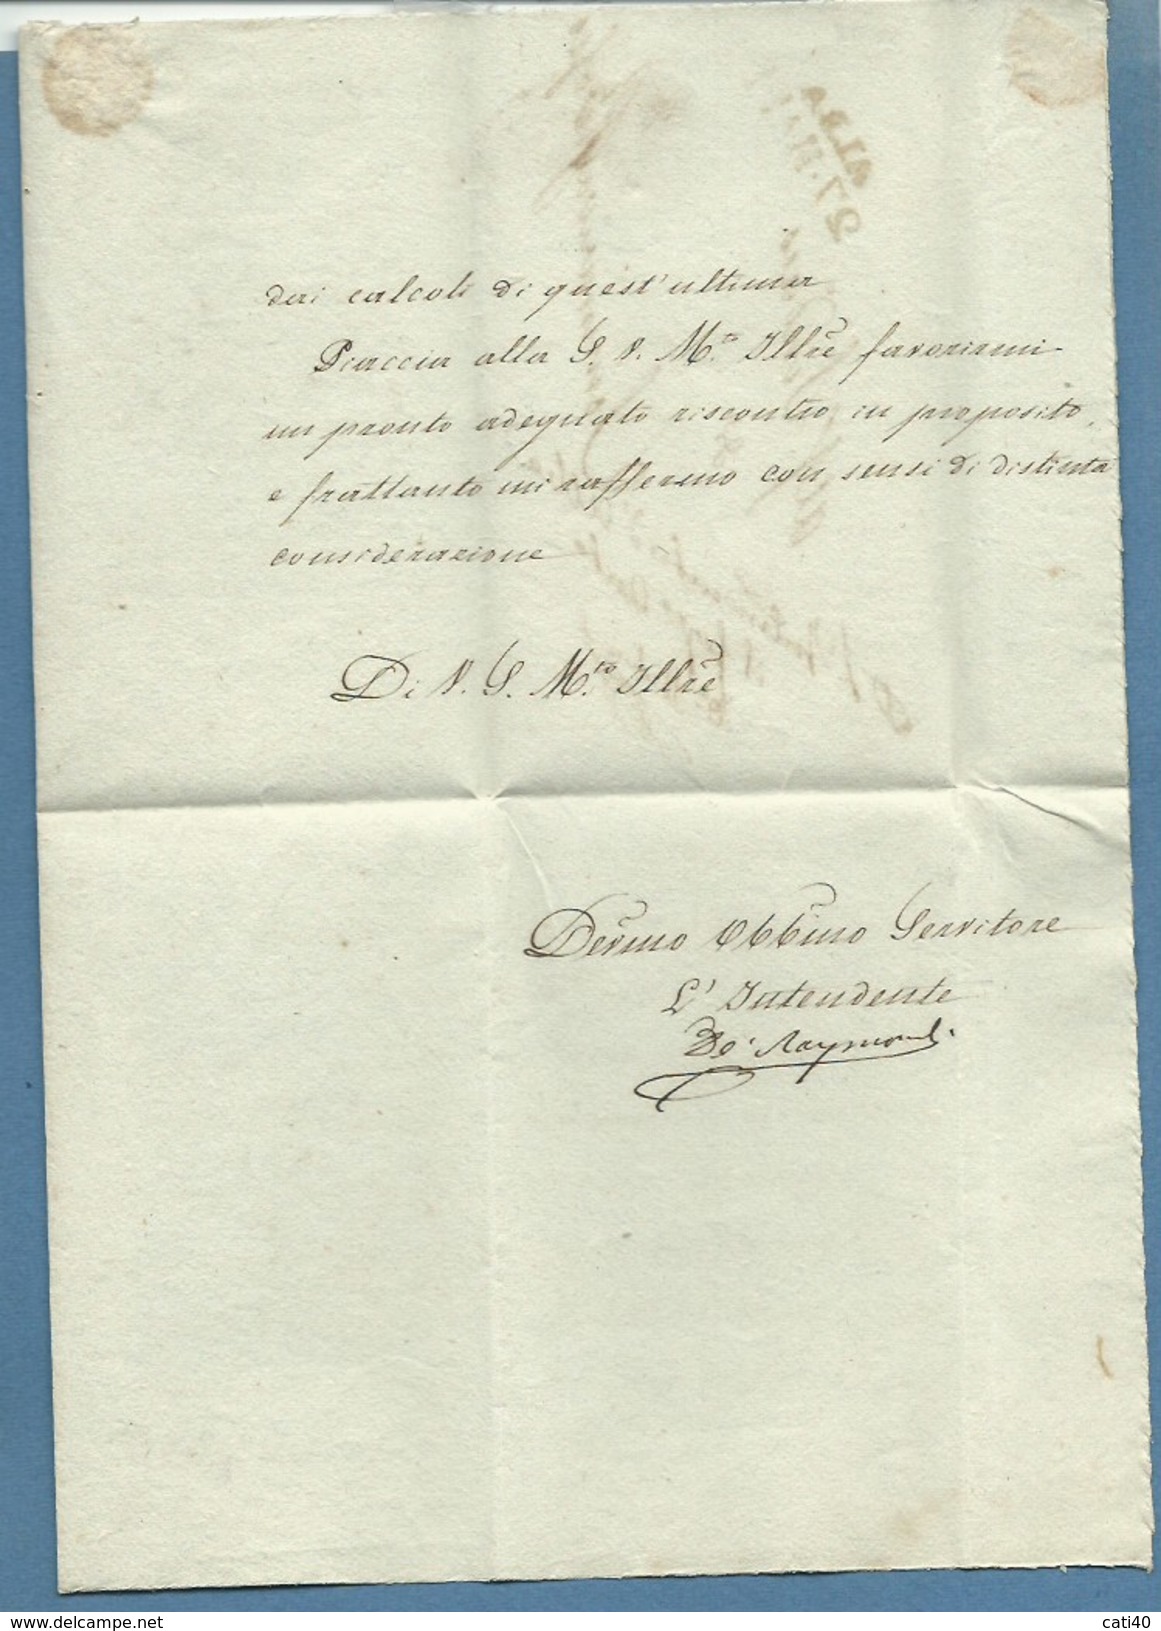 dai calcoli di quest'ultima
Piaccia alla S. V. M.to Ill.re favorirmi
un pronto adeguato riscontro in proposito,
e frattanto mi raffermo con sensi di distinta
considerazione
Di V. S. M.to Ill.re
Dev.mo Obb.mo Servitore
L'Intendente
De' Raymondi
cati40